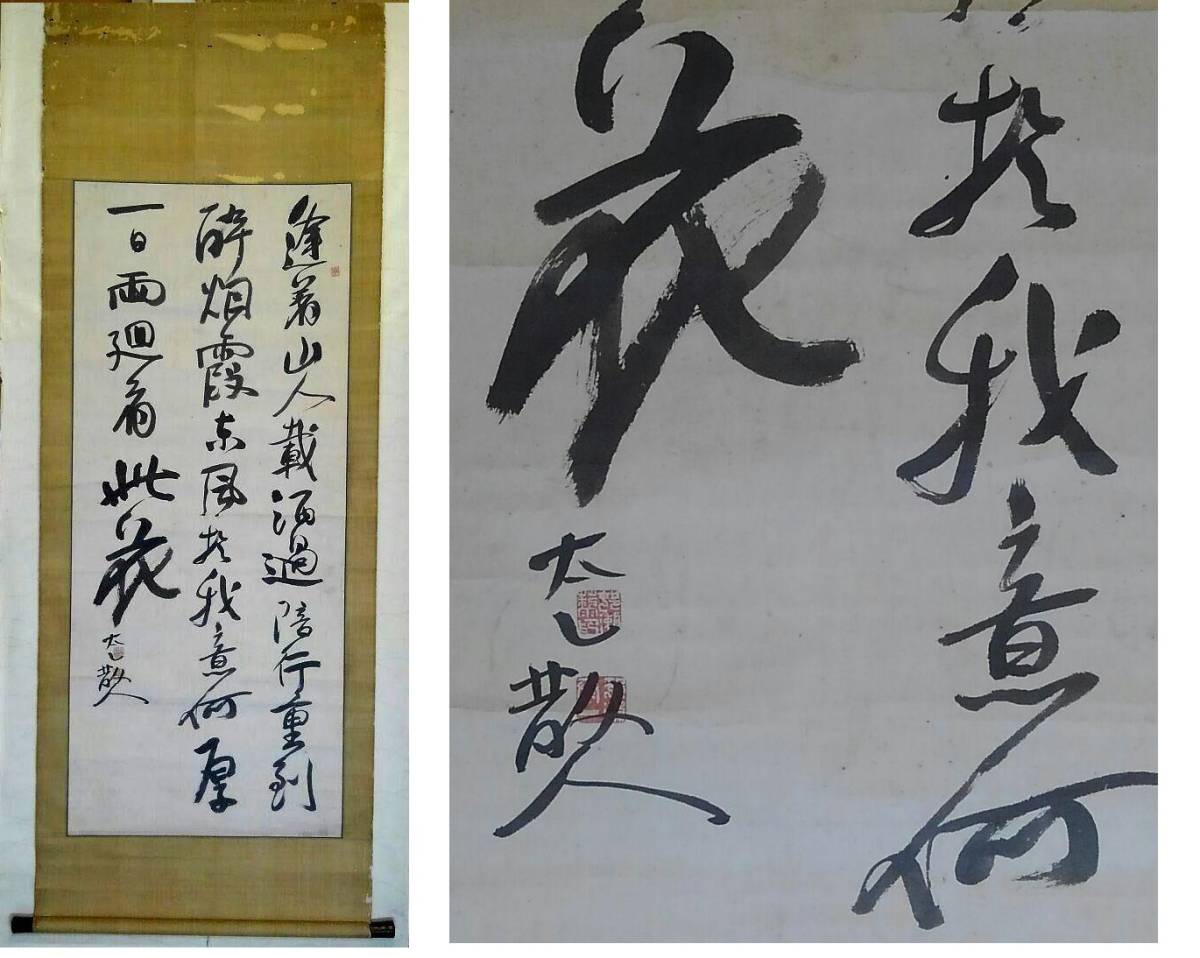 逢着山人載酒過陪行重到
酔烟霞東風於我意何厚
一日両廻看此花
太乙散人
於我意何
花
太乙散人